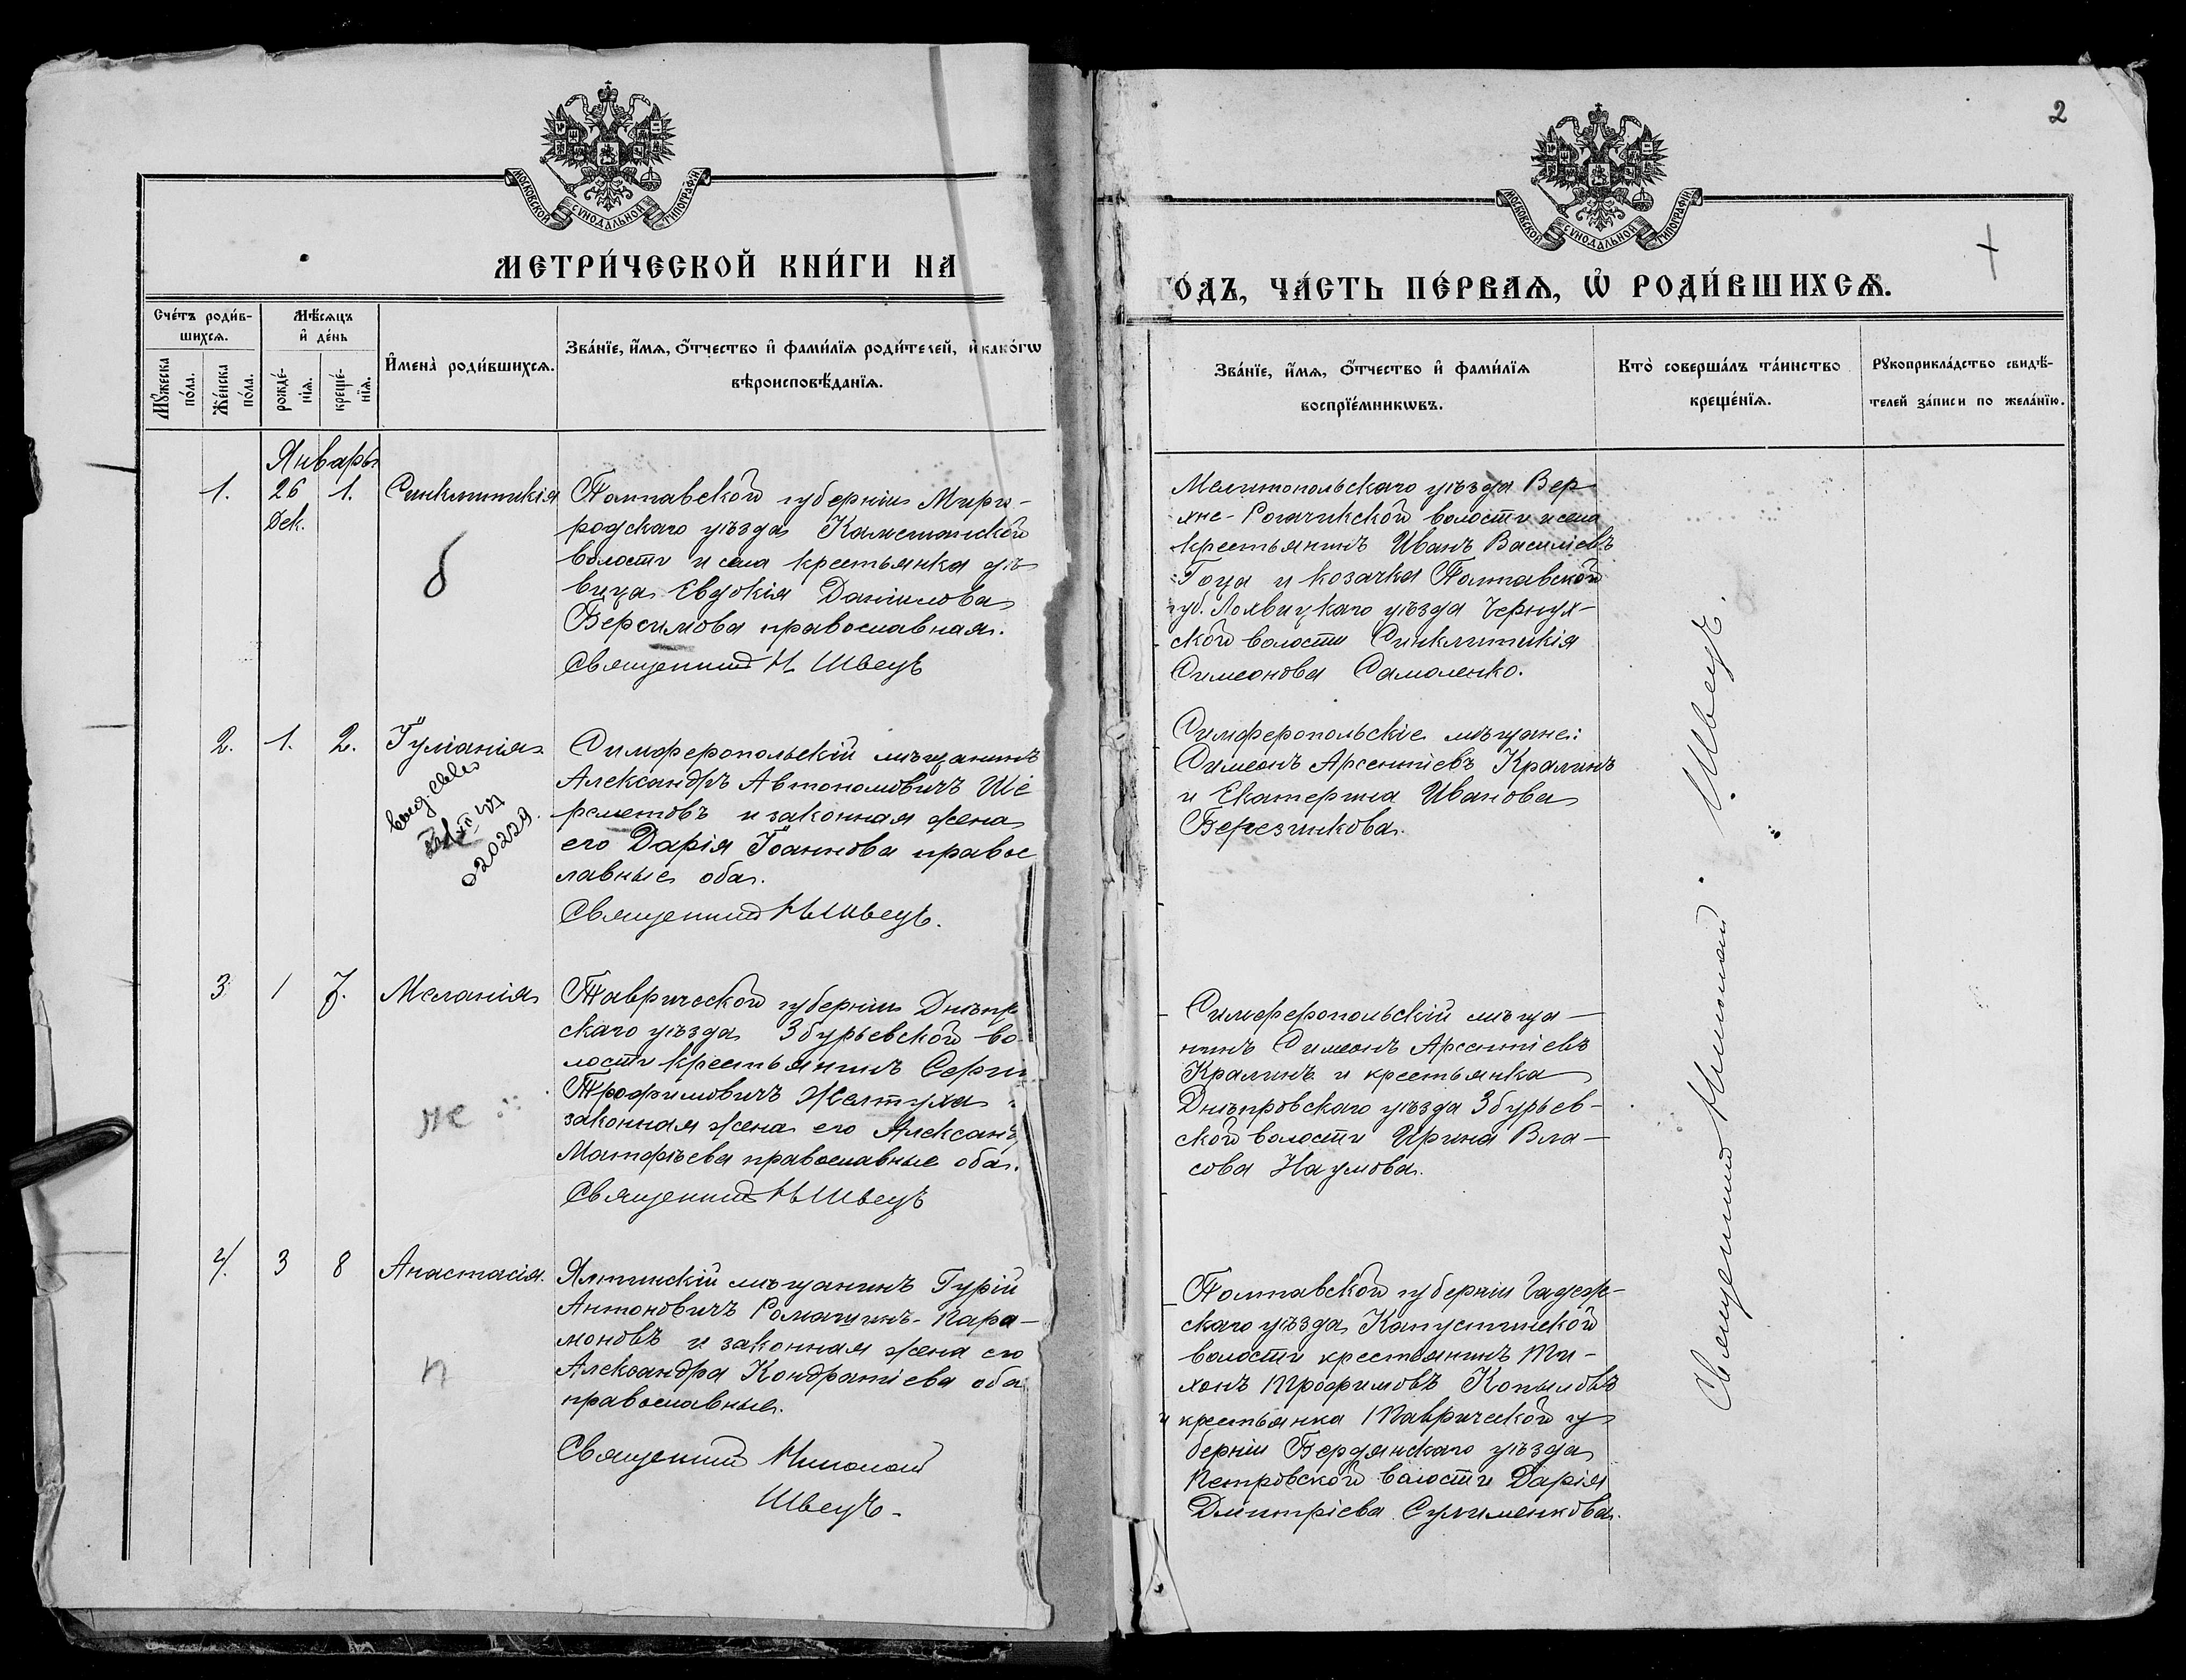 2
МОСКОВСКОЙ СѴНОДАЛЬНОЙ ТИПОГРАФІИ
МОСКОВСКОЙ СѴНОДАЛЬНОЙ ТИПОГРАФІИ
МЕТРИ́ЧЕСКОЙ КНИ́ГИ НА
ГО́ДЪ, ЧА́СТЬ ПЕ́РВАѦ, Ѡ҆ РОДИ́ВШИХСѦ.
Сче́тъ роди́в-
шихсѧ.
Мꙋ́жеска
по́ла.
Же́нска
по́ла.
Мѣ́сѧцъ
и҆ де́нь
рожде́-
нїѧ.
креще́-
нїѧ.
И҆мена̀ роди́вшихсѧ.
Зва́нїе, и҆́мѧ, ѻ҆́тчество и҆ фами́лїѧ роди́телей, и҆ како́гѡ
вѣроисповѣ́данїѧ.
Зва́нїе, и҆́мѧ, ѻ҆́тчество и҆ фами́лїѧ
воспрїе́мникѡвъ.
Кто̀ соверша́лъ та́инство
креще́нїѧ.
Рꙋкоприкла́дство свидѣ́-
телей за́писи по жела́нїю.
Январь
1. 26 1. Синклитикія
Дек.
б
Полтавской губерніи Мирго-
родскаго уѣзда
волости и села крестьянка дѣ-
вица Евдокія Даніилова
Берсимова православная.
Священникъ Н Швецъ
Мелитопольскаго уѣзда Вер-
хне-Рогачикской волости и села
крестьянинъ Иванъ Василіевъ
Гоца и козачка Полтавской
губ. Лохвицкаго уѣзда Чернух-
ской волости Синклитикія
Симеонова Самоленко.
2. 1. 2. Іуліанія
выд. свид.
020229.
Симферопольскій мѣщанинъ
Александръ Автономовичъ Ше
реметовъ и законная жена
его Дарія Іоаннова правос
лавные оба.
Священникъ Н Швецъ.
Симферопольскіе мѣщане:
Симеонъ Арсентіевъ Кралинъ
и Екатерина Иванова
Березникова.
3 1 7. Меланія
ж
Таврической губерніи Днѣпр
скаго уѣзда Збурьевской во-
лости крестьянинъ Серги
Трофимовичъ Желтуха
законная жена его Александ
Матфѣева православные оба.
Священникъ Н Швецъ
Симферопольскій мѣща-
нинъ Симеонъ Арсентіевъ
Кралинъ и крестьянка
Днѣпровскаго уѣзда Збурьев-
ской волости Ирина Вла-
сова Наумова.
4. 3 8 Анастасія.
п
Ялтинскій мѣщанинъ Гурій
Антоновичъ Ромашинъ-Пара-
моновъ и законная жена его
Александра Кондратіева оба
православные.
Священникъ Николай
Швецъ.
Полтавской губерніи Гадяч-
скаго уѣзда Капустинской
волости крестьянинъ Ти-
хонъ Трофимовъ Копыловъ
и крестьянка Таврической гу
берніи Бердянскаго уѣзда
Петровской волости Дарія
Димитріева Сулименкова.
Священникъ Николай Швецъ.